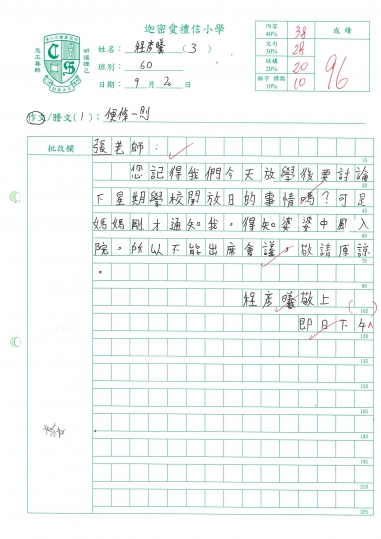 迦密愛禮信小學
內容 40% 38 成績
文句 30% 28
結構 20% 20 96
錯字 標點 10% 10
姓名： 程彥曦 （3）
班別： 6D
日期： 9 月 20 日
作文/謄文(1)：便條一則
批改欄
張老師：
您記得我們今天放學後要討論
下星期學校開放日的事情嗎？可是
媽媽剛才通知我，得知婆婆中風入
院，所以不能出席會議，敬請原諒
。
程彥曦敬上
即日下午
15
30
45
60
75
90
105
120
130
150
165
180
195
210
225